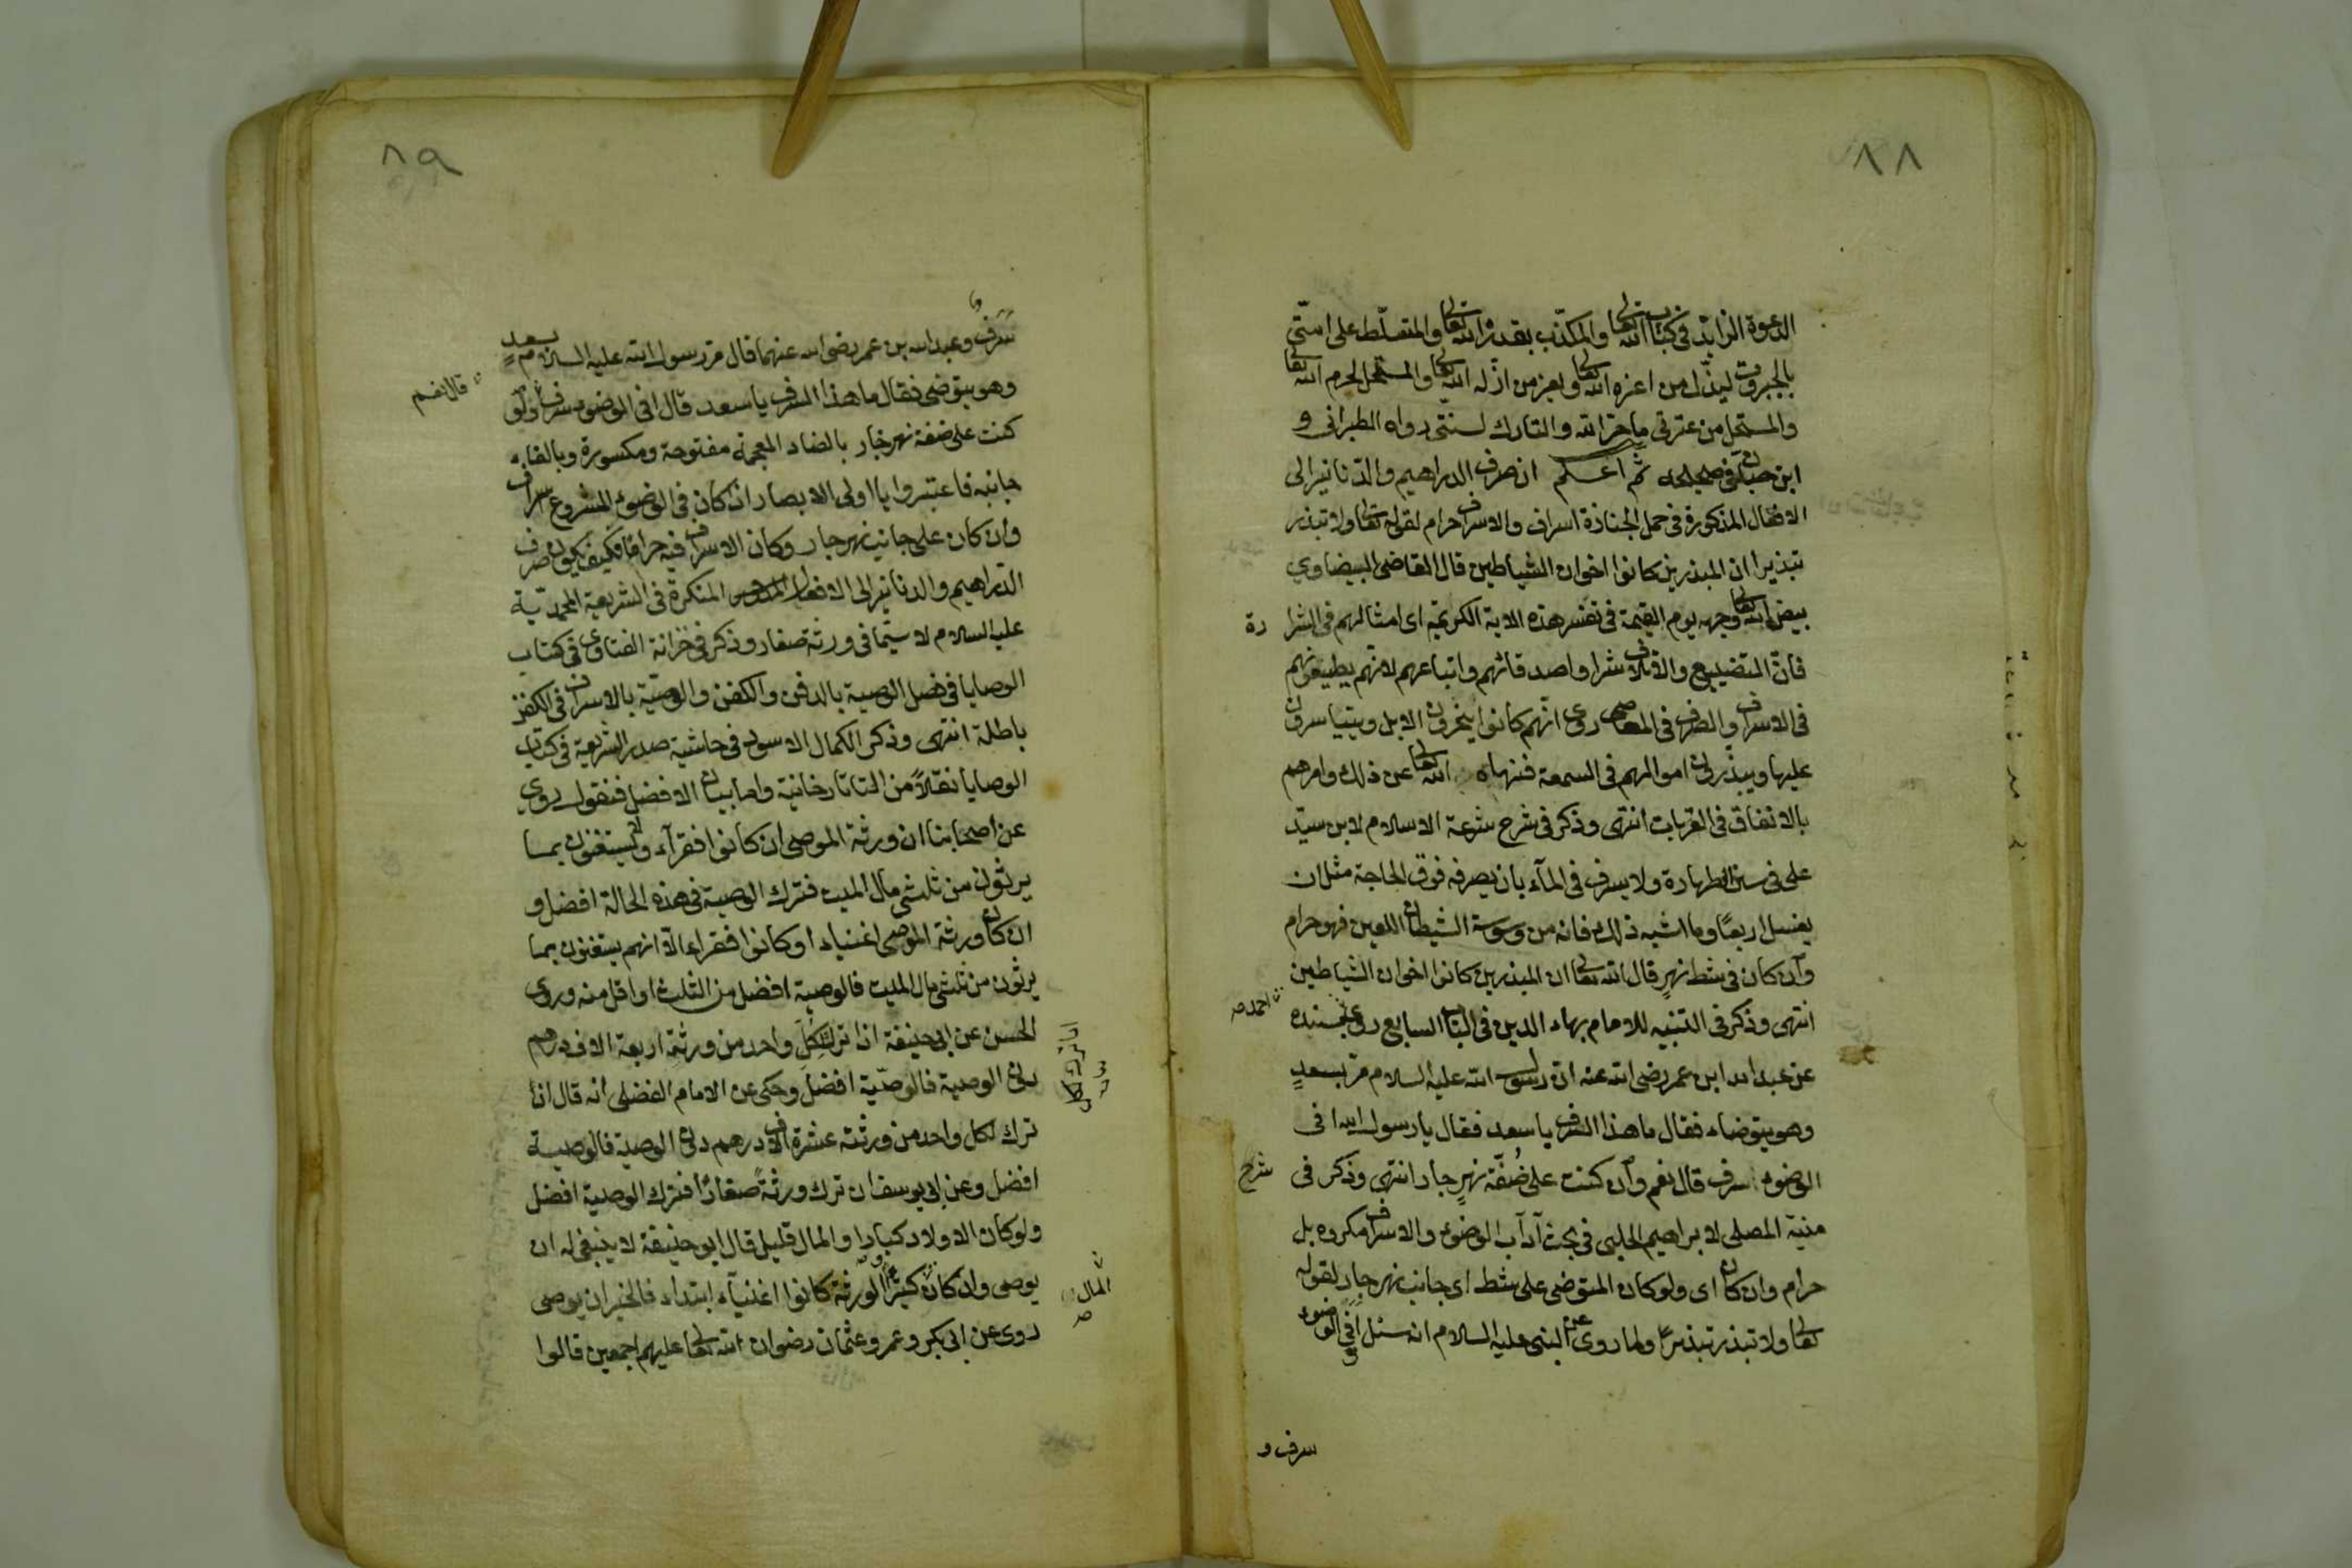 ٨٨
الدعوة الزايد في كتاب الله تعالى والمكذب بقدر الله تعالى والمتسلّط على امتى
بالجبروت ليذل من اعزه الله تعالى ويعز من اذله الله تعالى والمستحل لحرم الله تعالى
والمستحل من عترتى ما حرم الله والتارك لسنتى رواه الطبرانى و
ابن حبان فى صحيحه ثم اعلم ان صرف الدراهيم والدنانير الى
الافعال المذكورة فى حمل الجنازة اسراف والاسراف حرام لقوله تعالى ولا تبذر
تبذيرا ان المبذرين كانوا اخوان الشياطين قال القاضى البيضاوي
بيض الله تعالى وجهه يوم القيمة فى تفسر هذه الاية الكريمة اى امثالهم فى الشرا
رة
فانّ التضييع والاتلاف شر او اصدقائهم واتباعهم لانهم يطيعونهم
فى الاسراف والصرف فى المعاصى روى انّهم كانوا ينحرون الابل ويتياسرون
عليها ويبذرون اموالهم فى السمعة فنهاه الله تعالى عن ذلك وامرهم
بالانفاق فى القربات انتهى وذكر فى شرح شرعة الاسلام لابن سيّد
على فى سنن الطهارة ولا يسرف فى المآء بان يصرفه فوق الحاجة مثل ان
يغسل اربعًا وما اشبه ذلك فانه من وسوسة الشيطان اللعين فهو حرام
وان كان فى شط نهرٍ قال الله تعالى ان المبذرين كانوا اخوان الشياطين
انتهى وذكر فى التنبيه للامام بهاء الدين فى الباب السابع روى بمسنده
احمد صح
عن عبد الله ابن عمر رضى الله عنه انّ رسول الله عليه السلام مرّ بسعدٍ
وهو يتوضاء فقال ما هذا السرف يا سعد فقال يا رسول الله افى
الوضوء سرف قال نعم وان كنت على ضُفّة نهرٍ جار انتهى وذكر فى
شرح
منية المصلى لابراهيم الحلبى فى بحث آدآب الوضوء والاسراف مكروه بل
حرام وان كان اى ولو كان المتوضى على شط اى جانب نهر جارٍ لقوله
تعالى ولا تبذر تبذيرًا ولما روى عن النبى عليه السلام انه سئل افى الوضوء
سرف و
٨٩
سَرَفٌ وعبد الله بن عمر رضى الله عنهما قال مرّ رسول الله عليه السلام بسعدٍ
وهو يتوضى فقال ما هذا السرف يا سعد قال افى الوضوء سرف ولو
قال نعم
كنت على ضفة نهر جار بالضاد المعجمة مفتوحة ومكسورة وبالفاء
جانبه فاعتبروا يا اولى الابصار اذ كان فى الوضوء المشروع سراف
وان كان على جانب نهر جار وكان الاسراف فيه حرامًا فكيف يكون صرف
الدّراهيم والدنانير الى الافعال المنكرة فى الشريعة المحمديّة
عليه السلام لا سيّما فى ورثة صغار وذكر فى خزانة الفتاوى فى كتاب
الوصايا فى فصل الوصية بالدفن والكفن والوصيّة بالاسراف فى الكفن
باطلة انتهى وذكر الكمال الاسود فى حاشية صدر الشريعة فى كتاب
الوصايا نقلاً من التاتارخانية واما بيان الافضل فنقول روى
عن اصحابنا ان ورثة الموصى ان كانوا فقرآء ولا يستغنون بما
يرثون من ثلثى مال الميت فترك الوصية فى هذه الحالة افضل و
ان كان ورثة الموصى اغنياء او كانوا فقراء الّا انهم يستغنون بما
يرثون من ثلثى مال الميت فالوصية افضل من الثلث او اقل منه وروى
الحسن عن ابى حنيفة اذا ترك لكلّ واحد من ورثته اربعة الاف درهم
دون الوصية فالوصيّة افضل وحكى عن الامام الفضلى انه قال اذا
ترك لكل واحد من ورثته عشرة الاف درهم دون الوصية فالوصية
افضل وعن ابى يوسف ان ترك ورثةً صغارًا فترك الوصية افضل
ولو كان الاولاد كبارا والمال قليل قال ابو حنيفة لا ينبغى له ان
يوصى وان كان كثيرًا والورثة كانوا اغنيآء ابتداء فالخير ان يوصى
المال
صح
روى عن ابى بكر وعمر وعثمان رضوان الله تعالى عليهم اجمعين قالوا